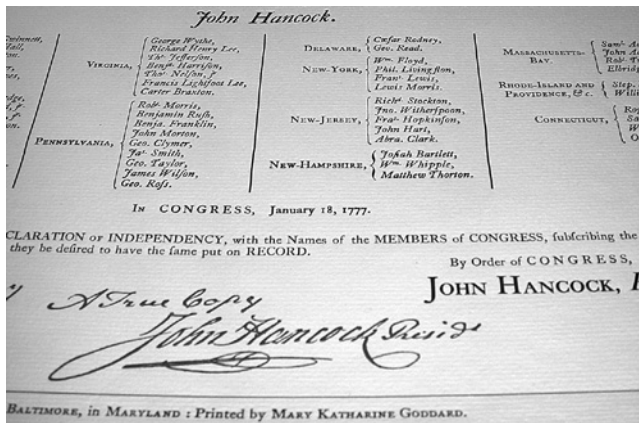 John Hancock.
VIRGINIA,
George Wythe,
Richard Henry Lee,
Thˢ Jefferſon,
Benjª Harriſon,
Thoˢ Nelſon, jʳ
Francis Lightfoot Lee,
Carter Braxton.
PENNSYLVANIA,
Robᵗ Morris,
Benjamin Ruſh,
Benja. Franklin,
John Morton,
Geo. Clymer,
Jaˢ Smith,
Geo. Taylor,
James Wilſon,
Geo. Roſs.
DELAWARE,
Cæſar Rodney,
Geo. Read.
NEW-YORK,
Wᵐ Floyd,
Phil. Livingſton,
Franˢ Lewis,
Lewis Morris.
NEW-JERSEY,
Richᵈ Stockton,
Jno. Witherſpoon,
Fraˢ Hopkinſon,
John Hart,
Abra. Clark.
NEW-HAMPSHIRE,
Joſiah Bartlett,
Wᵐ Whipple,
Matthew Thorton.
MASSACHUSETTS-
BAY.
RHODE-ISLAND AND
PROVIDENCE, &c.
Step.
CONNECTICUT,
IN CONGRESS, January 18, 1777.
CLARATION OF INDEPENDENCY, with the Names of the MEMBERS of CONGRESS, ſubſcribing the
they be deſired to have the ſame put on RECORD.
By Order of CONGRESS,
JOHN HANCOCK,
A True Copy
John Hancock Presidᵗ
BALTIMORE, in MARYLAND : Printed by MARY KATHARINE GODDARD.